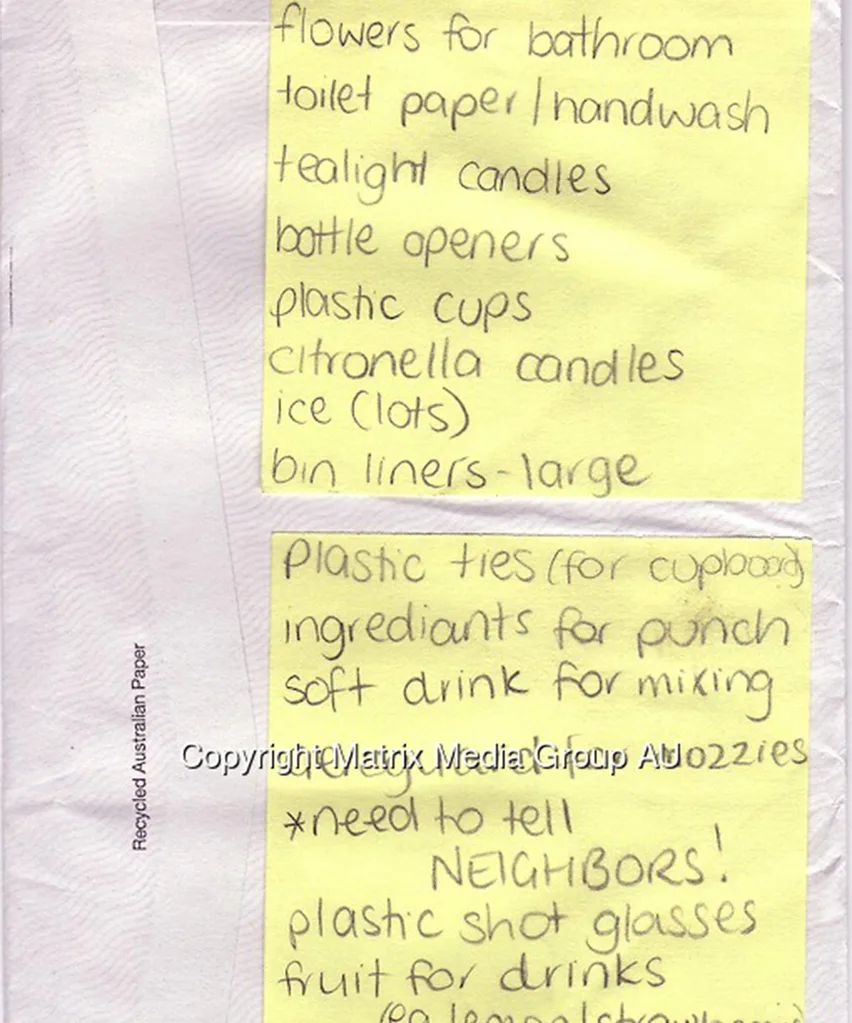 flowers for bathroom
toilet paper/handwash
tealight candles
bottle openers
plastic cups
citronella candles
ice (lots)
bin liners-large
Plastic ties (for cupboard)
ingrediants for punch
soft drink for mixing
aeroguard for mozzies
Copyright Matrix Media Group AU
*need to tell
NEIGHBORS!
plastic shot glasses
fruit for drinks
Recycled Australian Paper